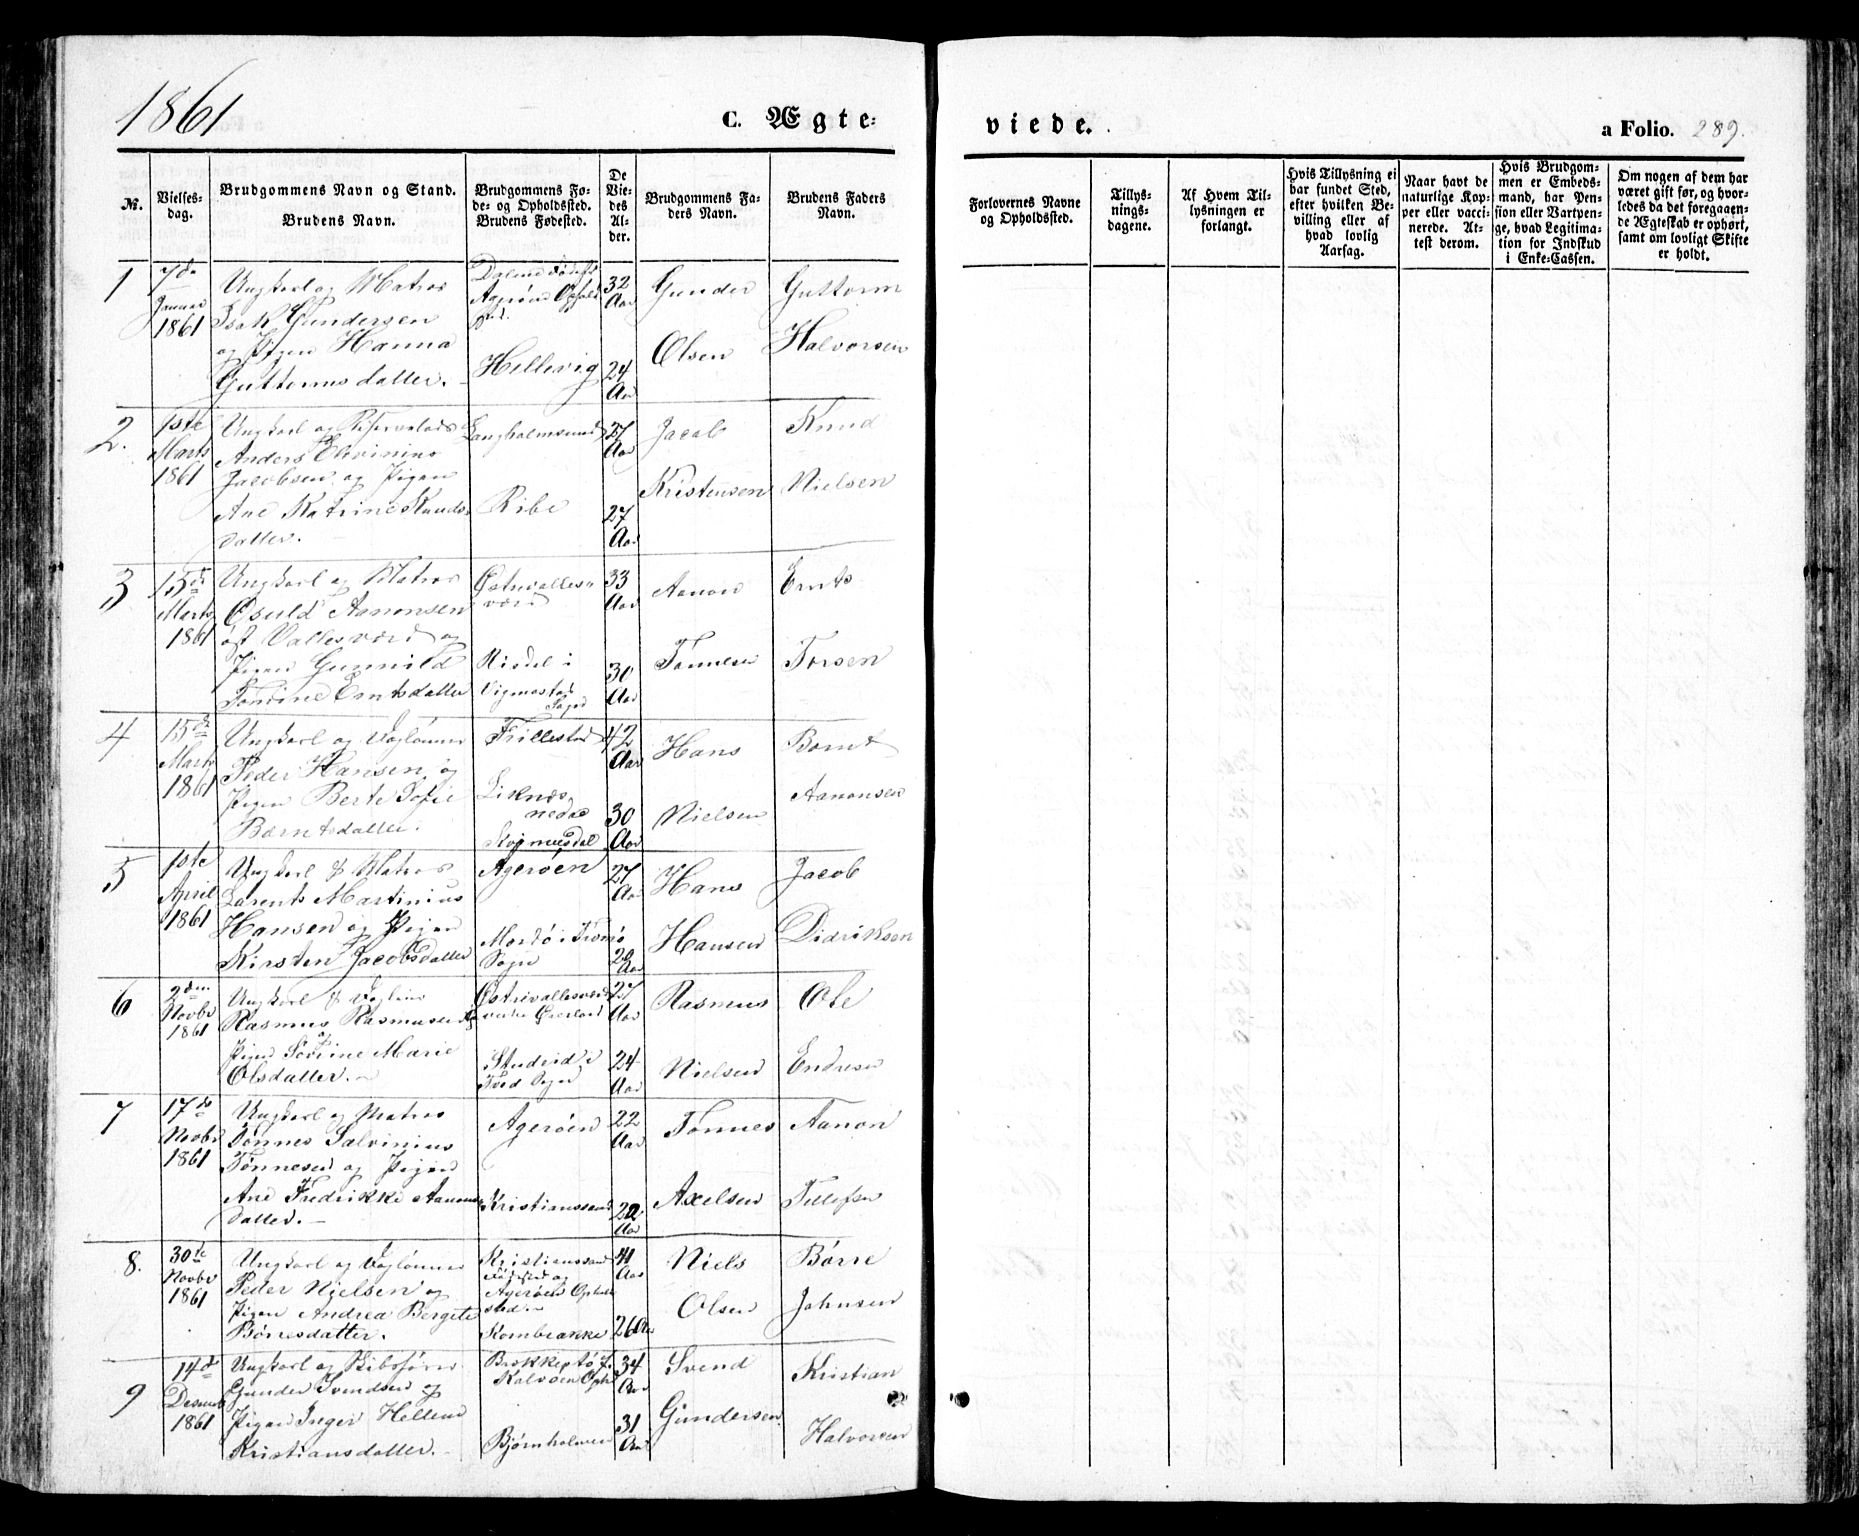 1861
C. Ægte-
viede.
a Folio. 289.
№.
Vielses-
dag.
Brudgommens Navn og Stand.
Brudens Navn.
Brudgommens Fø-
de- og Opholdssted.
Brudens Fødested.
De
Vie-
des
Al-
der.
Brudgommens Fa-
ders Navn.
Brudens Faders
Navn.
Forlovernes Navne
og Opholdssted.
Tillys-
nings-
dagene.
Af Hvem Til-
lysningen er
forlangt.
Hvis Tillysning ei
har fundet Sted,
efter hvilken Be-
villing eller af
hvad lovlig
Aarsag.
Naar havt de
naturlige Kop-
per eller vacci-
nerede. At-
test derom.
Hvis Brudgom-
men er Embeds-
mand, har Pen-
sion eller Vartpen-
ge, hvad Legitima-
tion for Indskud
i Enke-Cassen.
Om nogen af dem har
været gift før, og hvor-
ledes da det foregaaen-
de Ægteskab er ophørt,
samt om lovligt Skifte
er holdt.
1
7de
Januar
1861
Ungkarl og Matros
Isak Gundersen
og Pigen Hanna
Guttormsdatter.
Agerøen Ophold
sted.
Hellevig
32
Aar
24
Aar
Gunder
Olsen
Guttorm
Halvorsen
2.
1ste
Marts
1861
Ungkarl og
Anders
Jacobsen og Pigen
Ane Katrine Knuds-
datter.
Langholmsund
Ribe
27
Aar
27
Aar
Jacob
Kristensen
Knud
Nielsen
3
15de
Marts
1861
Ungkarl og Matros
Osuld Aanonsen
øst Vallesværd og
Pigen Gunnild
Tomine Erntsdatter
Østrevalles-
værd
Risdal i
Vigmostad
Sogn
33
Aar
30
Aar
Aanon
Tønnesen
Ernts
Torsen
4
15de
Marts
1861
Ungkarl og Daglønner
Peder Hansen og
Pigen Berte Sofie
Berntsdatter.
Trillestad
42
Aar
30
Aar
Hans
Nielsen
Bernt
Aanonsen
5
1ste
April
1861
Ungkarl & Matros
Larents Martinius
Hansen og Pigen
Kirsten Jacobsdatter
Agerøen
Mordø i Tromø
Sogn
27
Aar
20
Aar
Hans
Hansen
Jacob
Didriksen
6
2den
Novbr
1861
Ungkarl &
Rasmus Rasmusen og
Pigen Sørine Marie
Olsdatter.
Østrevallesværd
Studvid i
Tved Sogn
27
Aar
24
Aar
Rasmus
Nielsen
Ole
Endresen
7
17de
Novbr
1861
Ungkarl og Matros
Tønnes Salvinius
Tønnesen og Pigen
Ane Fredrikke Aanons-
datter.
Agerøen
Kristianssand
22
Aar
20
Aar
Tønnes
Axelsen
Aanon
Tellefsen
8.
30te
Novbr
1861
Ungkarl og Daglønner
Peder Nielsen og
Pigen Andrea Bergete
Børresdatter.
Kristianssand
Fødested og
Agerøen Ophold
sted.
Kornbrække
41
Aar
26 Aar
Niels
Olsen
Børre
Johnsen
9
14de
1861
Ungkarl og Skibsfører
Gunder Svendsen og
Pigen Inger Hellene
Kristiansdatter.
Brekkestø f.
Kalvøen Ophd
Bjørnholmen
34
Aar
31
Aar
Svend
Gundersen
Kristian
Halvorsen